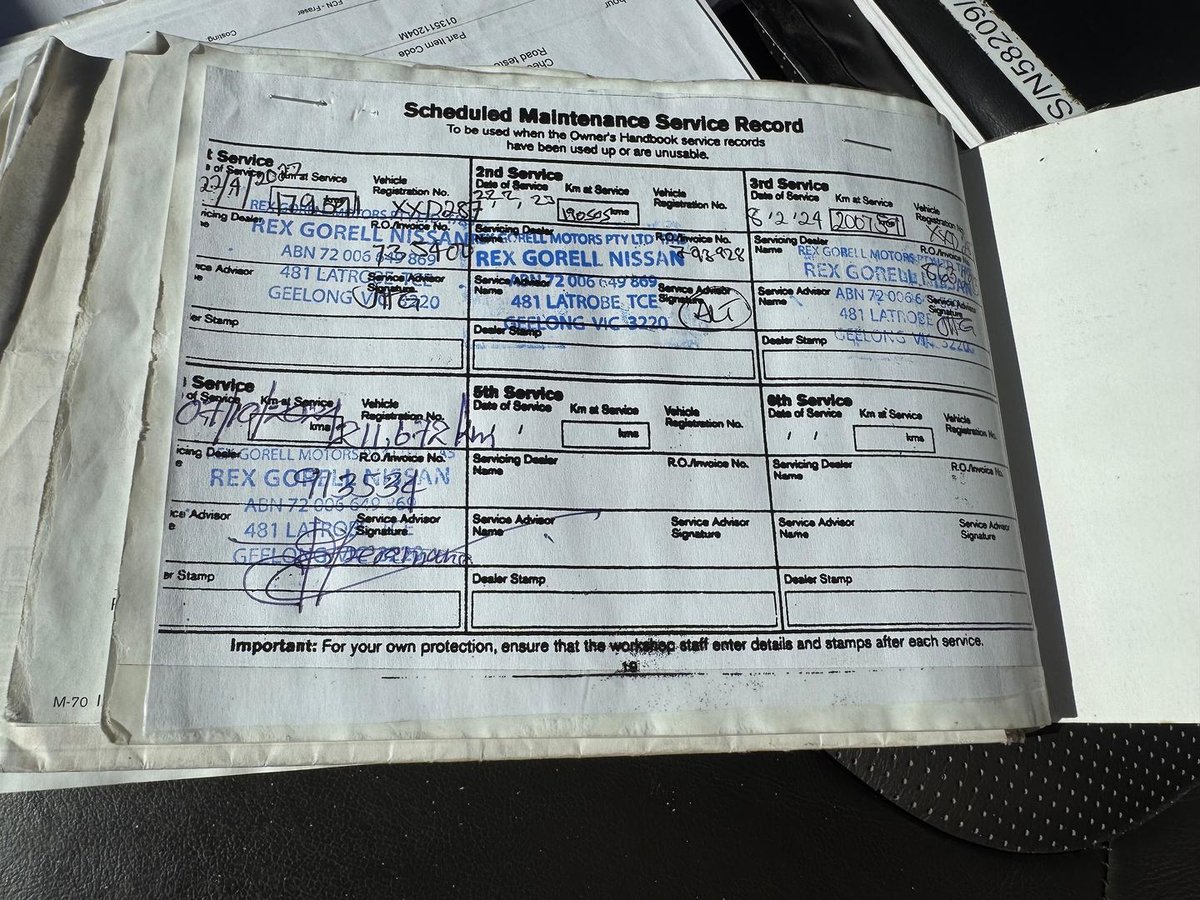 FCN - Fraser
Costing
01351204M
Part Item Code
S/N58209/
Scheduled Maintenance Service Record
To be used when the Owner's Handbook service records
have been used up or are unusable.
t Service
of Service
Km at Service
Vehicle
Registration No.
22/4/2022
XXD287
REX GORELL MOTORS
icing Dealer
R.O./Invoice No.
REX GORELL NISSAN
ABN 72 006 649 869
ce Advisor
Service Advisor
Signature
481 LATROBE
GEELONG VIC 3220
er Stamp
2nd Service
Date of Service
Km at Service
Vehicle
Registration No.
190505 kms
Servicing Dealer
Name
R.O./Invoice No.
GORELL MOTORS PTY LTD
793928
REX GORELL NISSAN
ABN 72 006 649 869
Service Advisor
Signature
481 LATROBE TCE
GEELONG VIC 3220
Dealer Stamp
3rd Service
Date of Service
Km at Service
Vehicle
Registration No.
8 '2 '24
Servicing Dealer
Name
R.O./Invoice
REX GORELL MOTORS
REX GORELL
Service Advisor
Name
Service Advisor
Signature
ABN 72 006 6
481 LATROBE
GEELONG VIC 3220
Dealer Stamp
Service
of Service
Km at Service
Vehicle
Registration No.
07/10/2024
kms
211,672 km
icing Dealer
R.O./Invoice No.
GORELL MOTORS
REX GORELL NISSAN
913534
ABN 72 006 649 869
ice Advisor
Service Advisor
Signature
481 LATROBE
GEELONG
er Stamp
5th Service
Date of Service
Km at Service
Vehicle
Registration No.
kms
Servicing Dealer
Name
R.O./Invoice No.
Service Advisor
Name
Service Advisor
Signature
Dealer Stamp
6th Service
Date of Service
Km at Service
Vehicle
Registration No.
kms
Servicing Dealer
Name
R.O./Invoice No.
Service Advisor
Name
Service Advisor
Signature
Dealer Stamp
Important: For your own protection, ensure that the workshop staff enter details and stamps after each service.
19
M-70